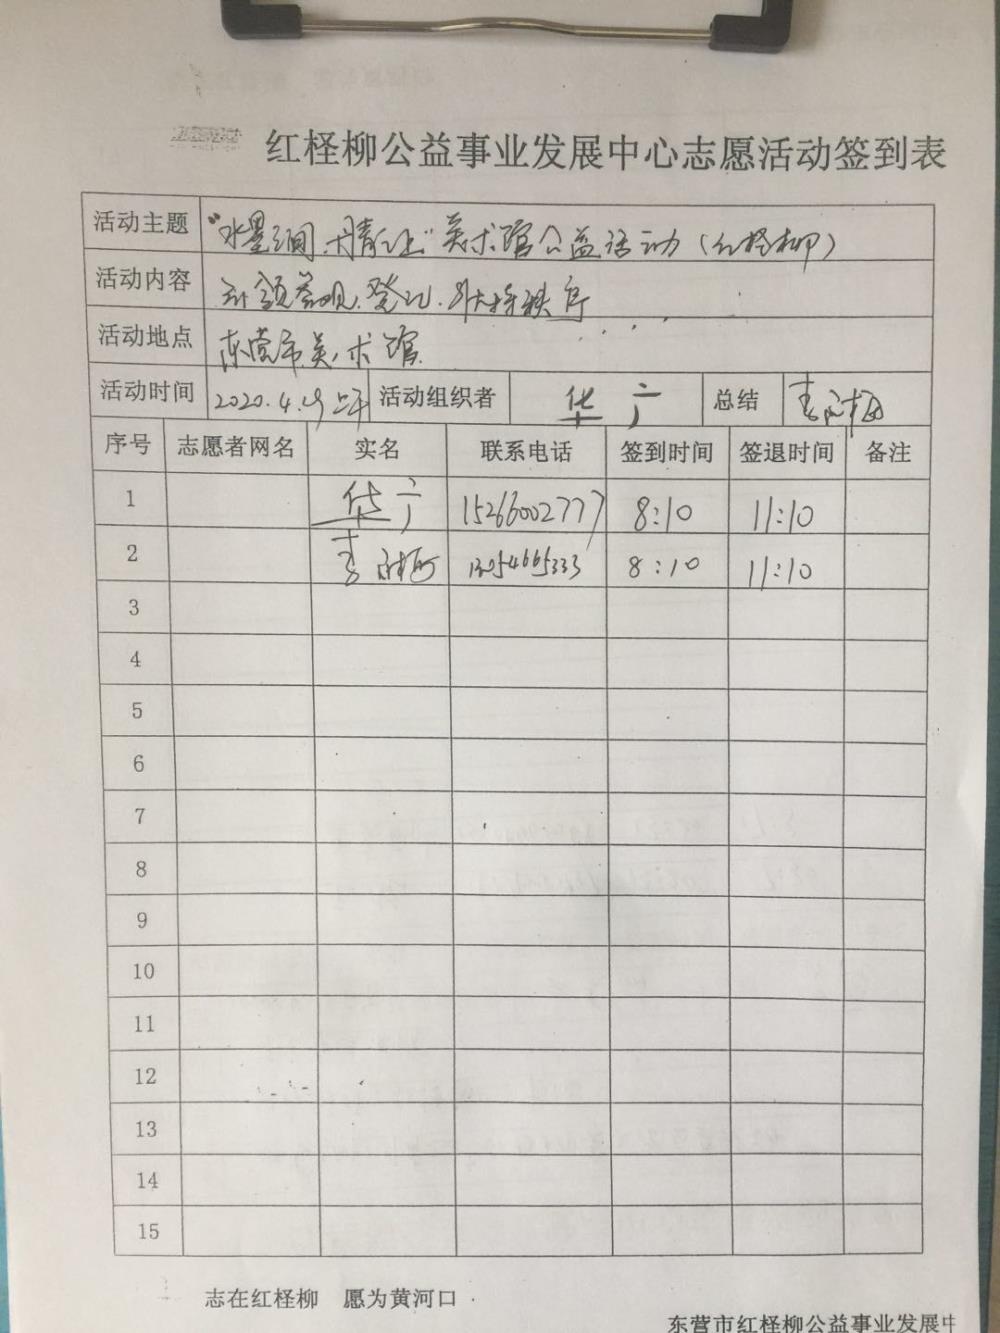 红柽柳公益事业发展中心志愿活动签到表
活动主题 "水墨之间、丹青之上"美术馆公益活动(红柽柳)
活动内容 引领参观、登记、维持秩序
活动地点 东营市美术馆
活动时间 2020.4.19上午 活动组织者 华广 总结
序号 志愿者网名 实名 联系电话 签到时间 签退时间 备注
1 华广 15266002777 8:10 11:10
2 8:10 11:10
3
4
5
6
7
8
9
10
11
12
13
14
15
志在红柽柳 愿为黄河口
东营市红柽柳公益事业发展中